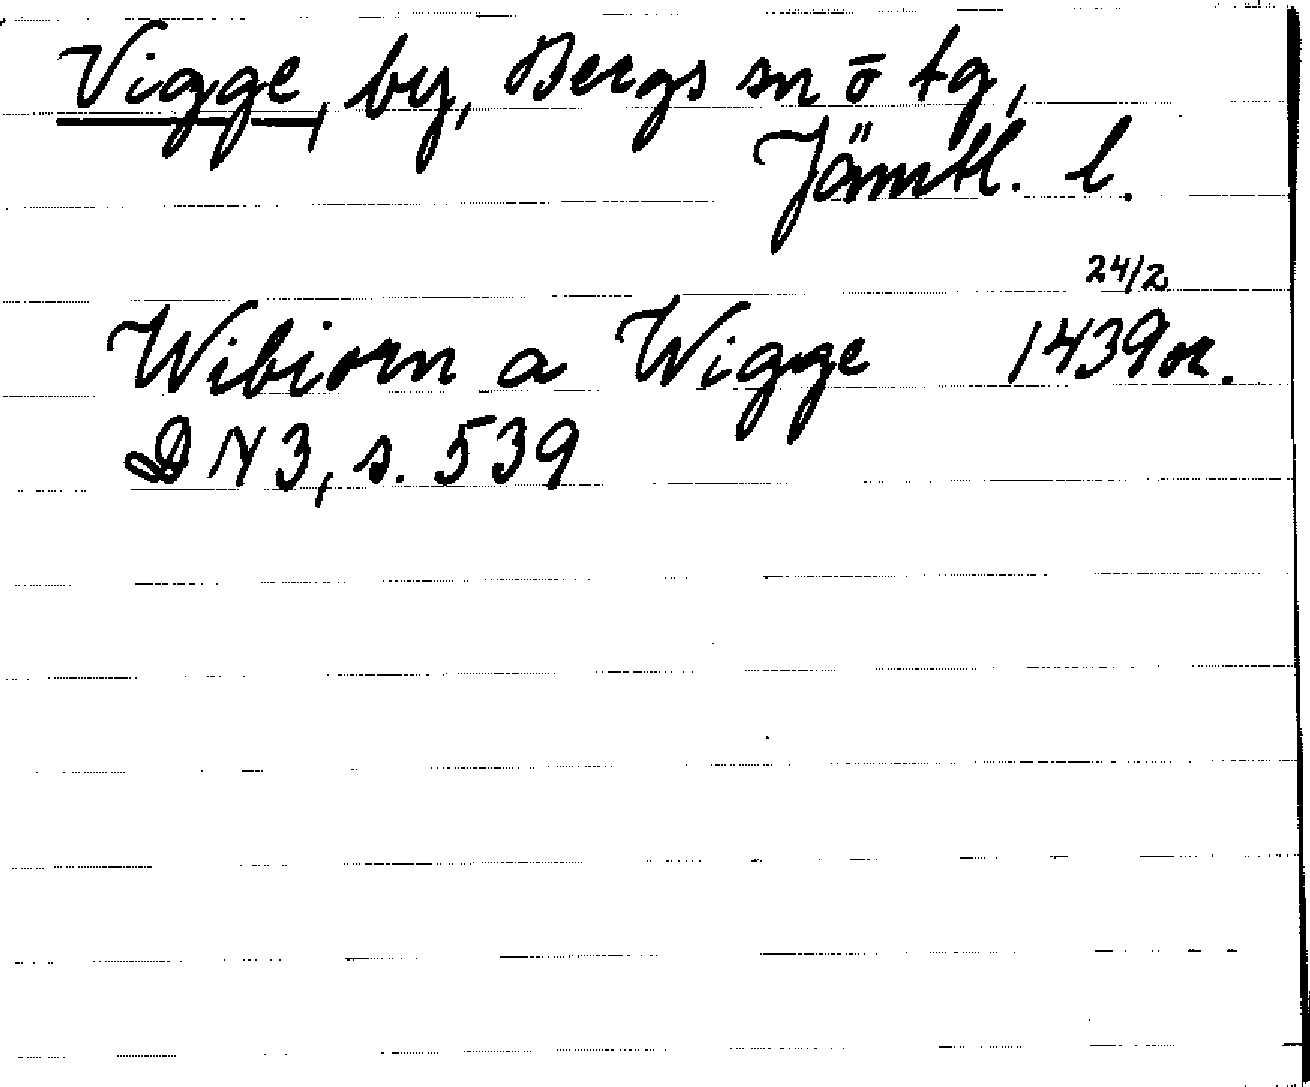 Vigge, by, Bergs sn ō tg,
Jämtl. l.
24/2
Wibiorn a Wigge 1439 or.
DN 3, s. 539